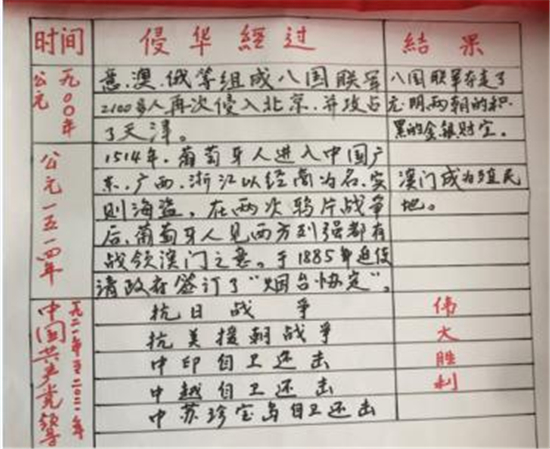 时间 侵华经过 结果
公元一九00年
意、澳、俄等组成八国联军
2100多人再次侵入北京、并攻占
了天津。
八国联军夺走了
元、明、两朝的积
累的金银财宝。
公元一五一四年
1514年、葡萄牙人进入中国广
东、广西、浙江以经商为名、实
则海盗。在两次鸦片战争
后、葡萄牙人见西方列强都有
战领澳门之意。于1885年迫使
清政府签订了“烟台协定”。
澳门成为殖民
地。
中国共产党
一九二一年至二0二一年
抗日战争
抗美援朝战争
中印自卫还击
中越自卫还击
中苏珍宝岛自卫还击
伟
大
胜
利